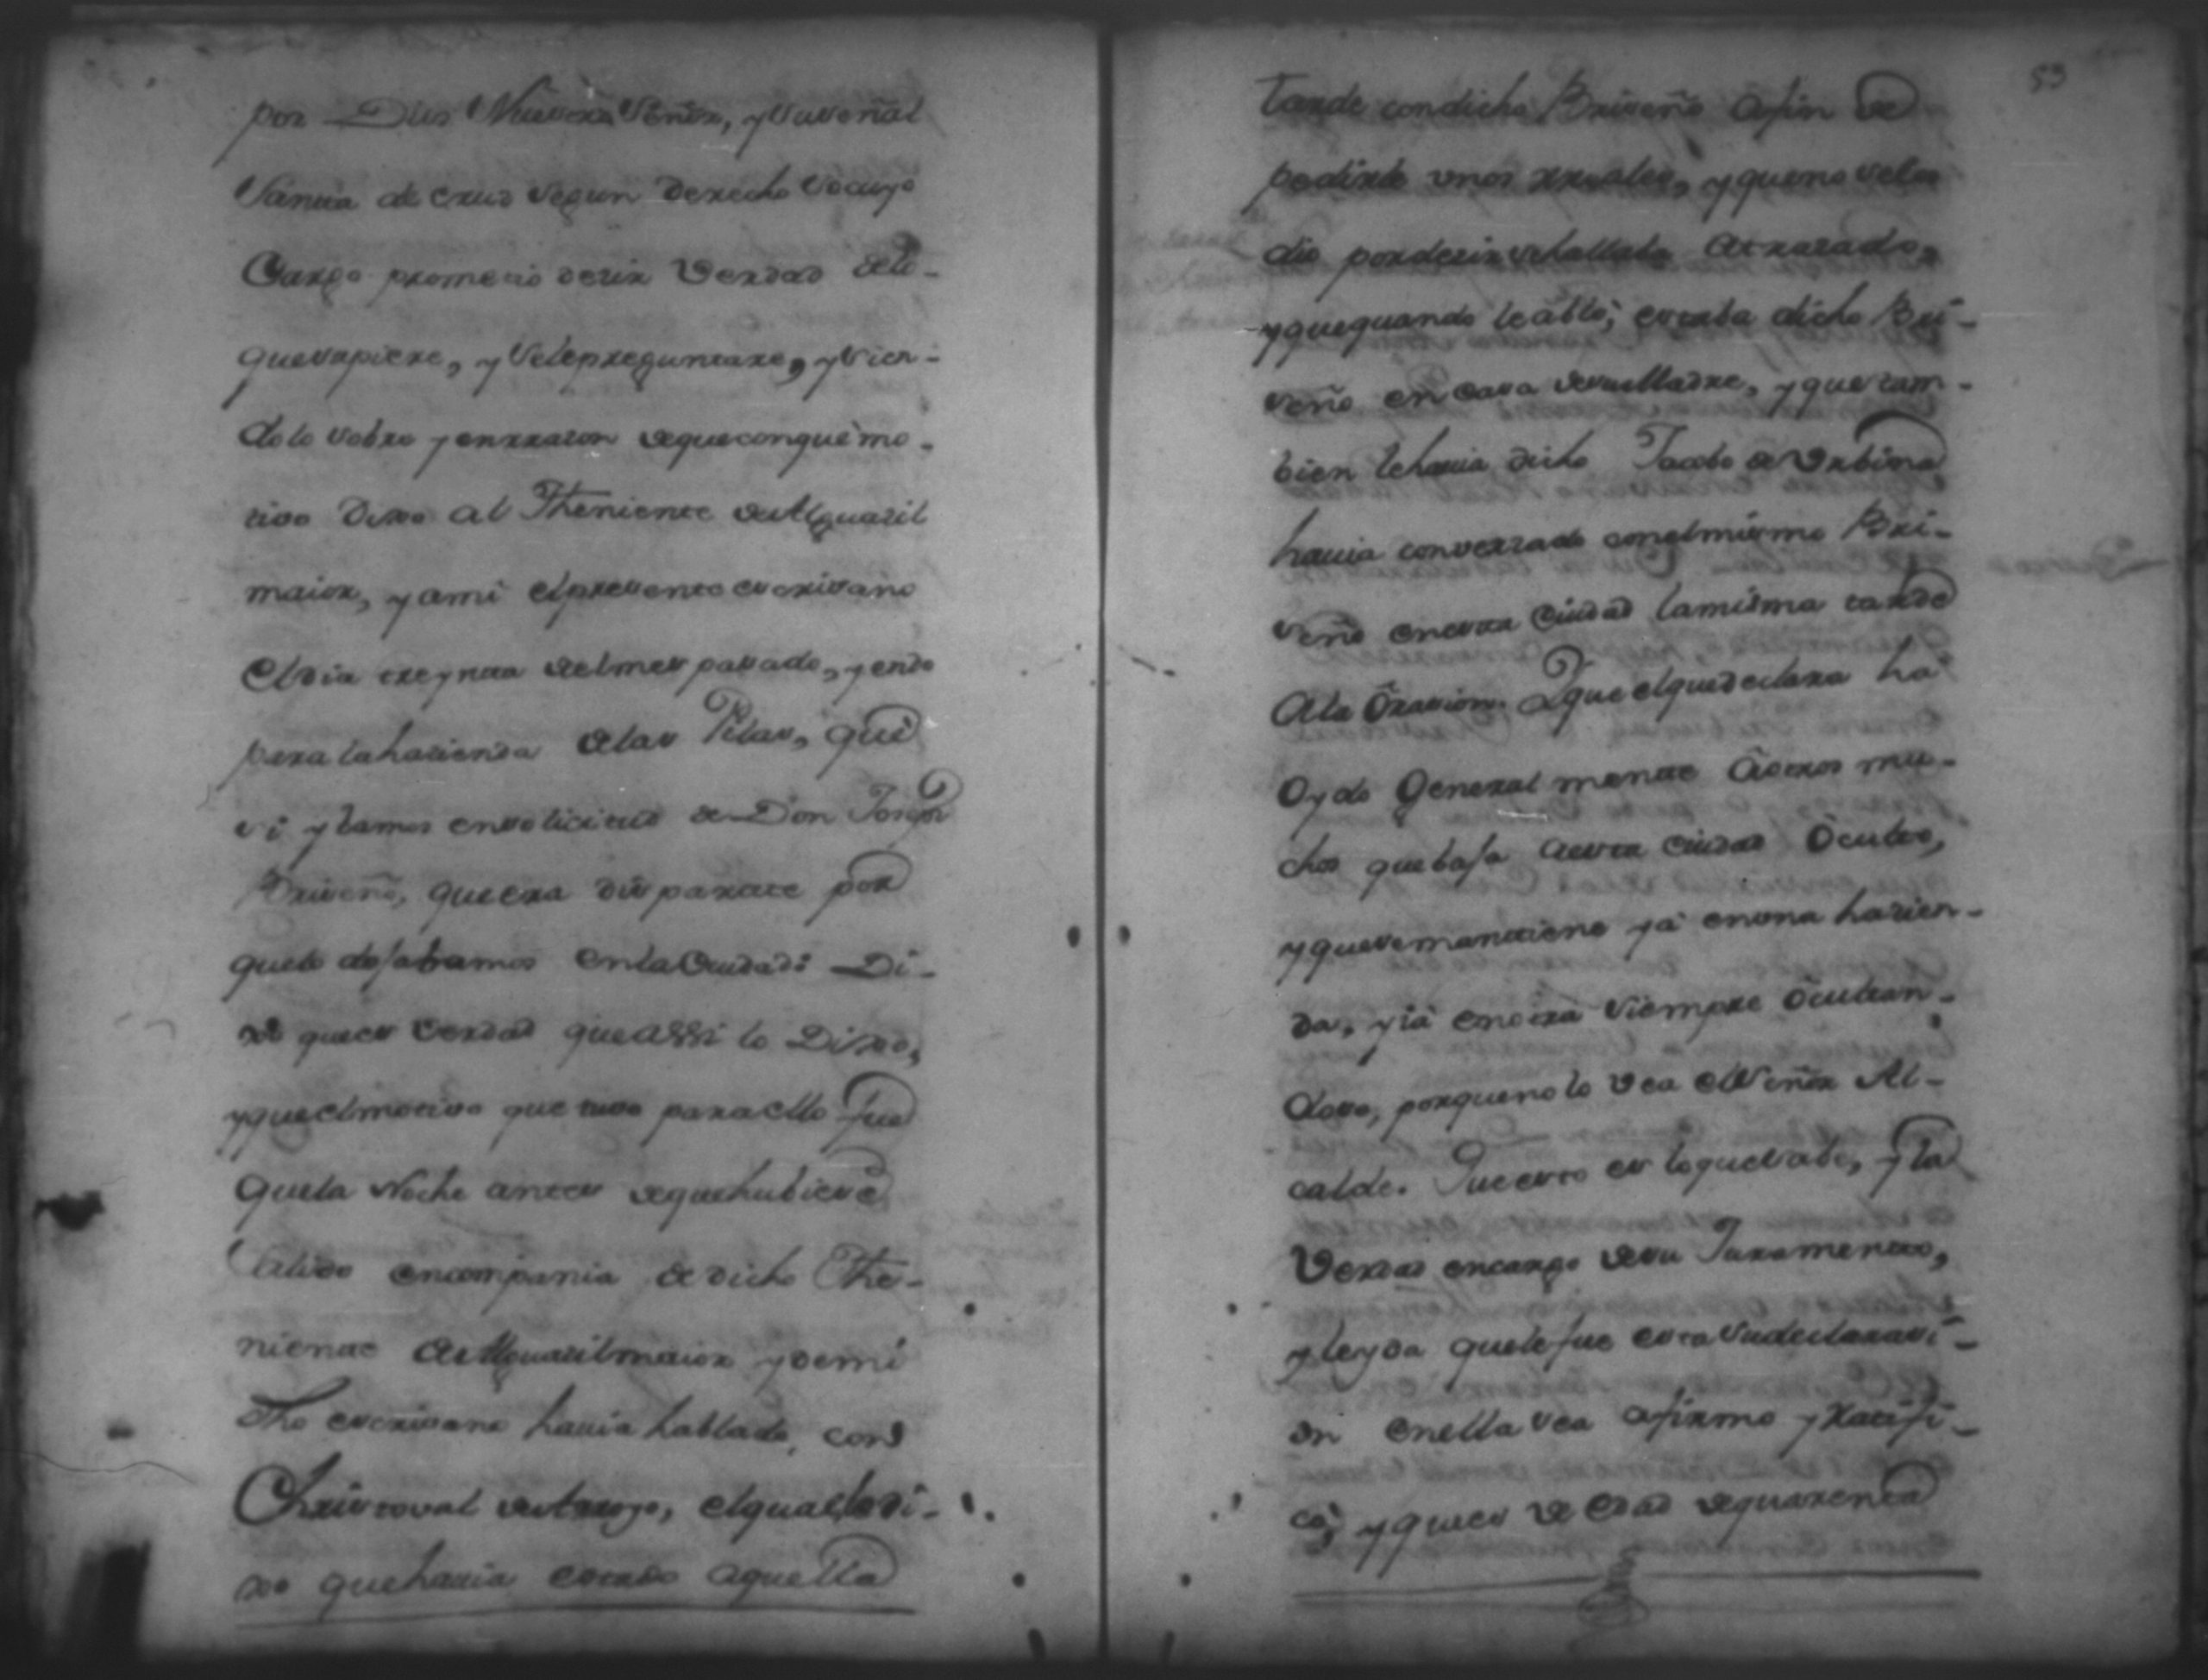 por Dios Nuestro Señor, y su señal
Santa de cruz segun derecho so cuyo
Cargo prometió decir Verdad delo-
quesupiere, y sele preguntare, y sien-
dolo sobre y enrrazon deque conquemo-
tivo Dixo al Theniente de Alguazil
maior, y ami elpresente escrivano
Eldia treynta delmes pasado, yendo
para lahazienda delas Pilas, que
si ybamos ensolicitud de Don Joseph
Briseño, que era disparate por
quelo dejabamos enlaCiudad: Di-
xo quees verdad que assi lo Dixo,
yque elmotivo que tuvo paraello fue
quela Noche antes deque hubiese
salido encompania de dicho The-
niente de Alguazil maior y demi
dho escrivano havia hablado, con
Christoval de Arroyo, elqual lo di-
xo quehavia estado aquella
53
tarde condicho Briseño afin de
pedirle unos rreales, y queno selos
dio pordecir sehallaba atrazado,
yquequando leabló, estaba dicho Bri-
seño en casa desu Madre, y que tam-
bien lehavia dicho Jacobo de Urbina
havia conversado conelmismo Bri-
seño enesta Ciudad lamisma tarde
Ala Orasion. Yque elquedeclara ha
Oydo General mente á otros mu-
chos que baja aesta ciudad Oculto,
yquesemantiene ya enuna hazien-
da, yia enotra siempre Ocultan-
dose, porqueno lo vea elSeñor Al-
calde. Que esto es loquesabe, y la
Verdad encargo desu Juramento,
y leyda quele fue esta sudeclarasi-
on enella sea afirmo y Ratifi-
có, y quees de edad dequarenta